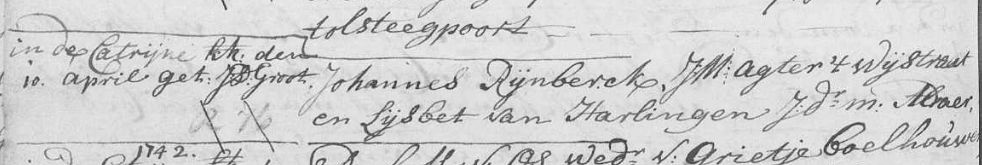 tolsteegpoort
in de Catrijne kk. den
10. april get: JD Groot. Johannes Rijnberck, JM: agter 't wijstraat
en Lijsbet van Harlingen J: dr. m:
1742. wedr. v: Grietje Coelhouwer